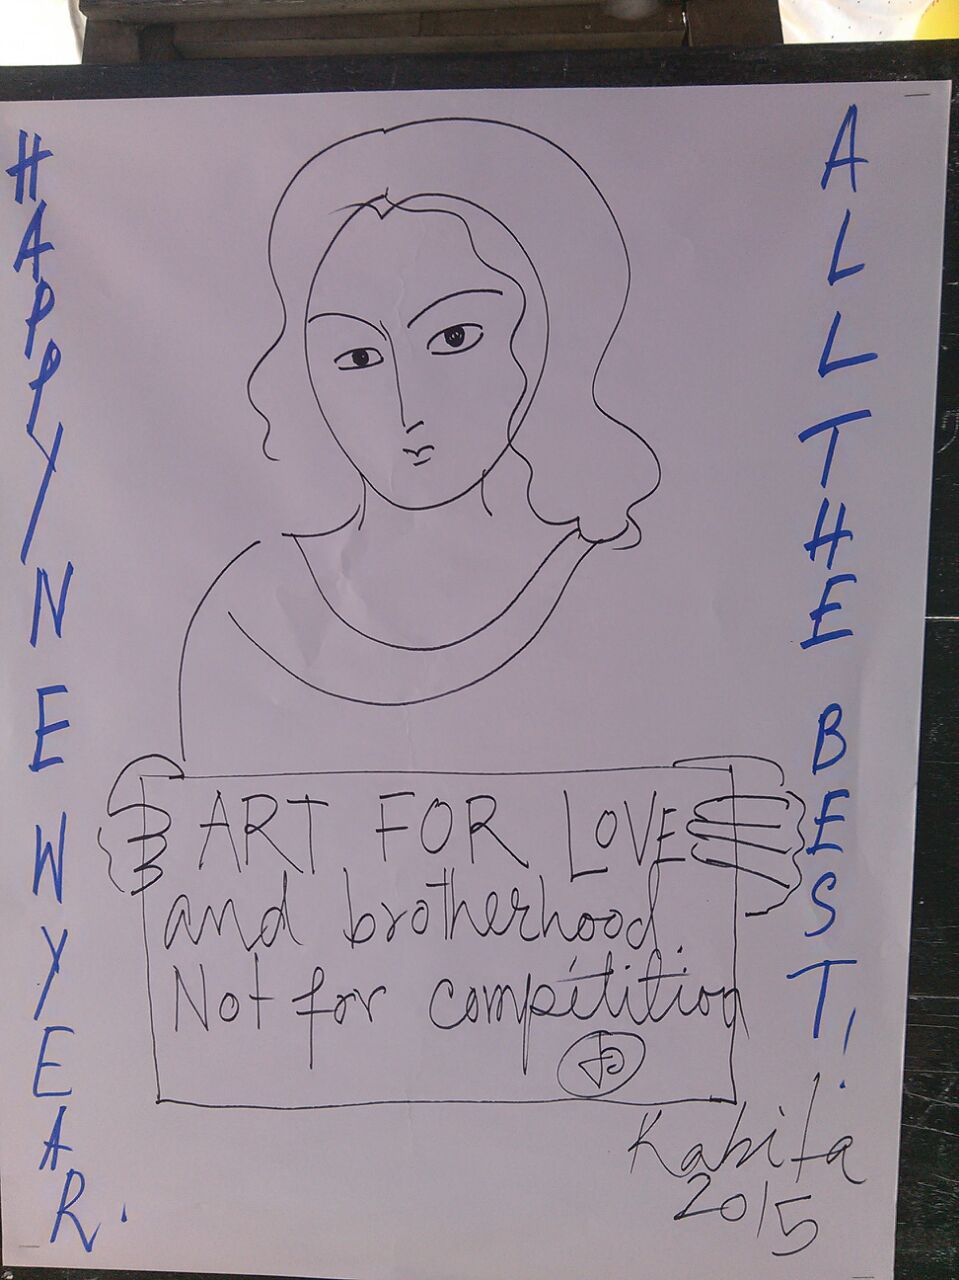 HAPPY NEW YEAR.
ALL THE BEST!
ART FOR LOVE
and brotherhood.
Not for compétition
Kabita
2015